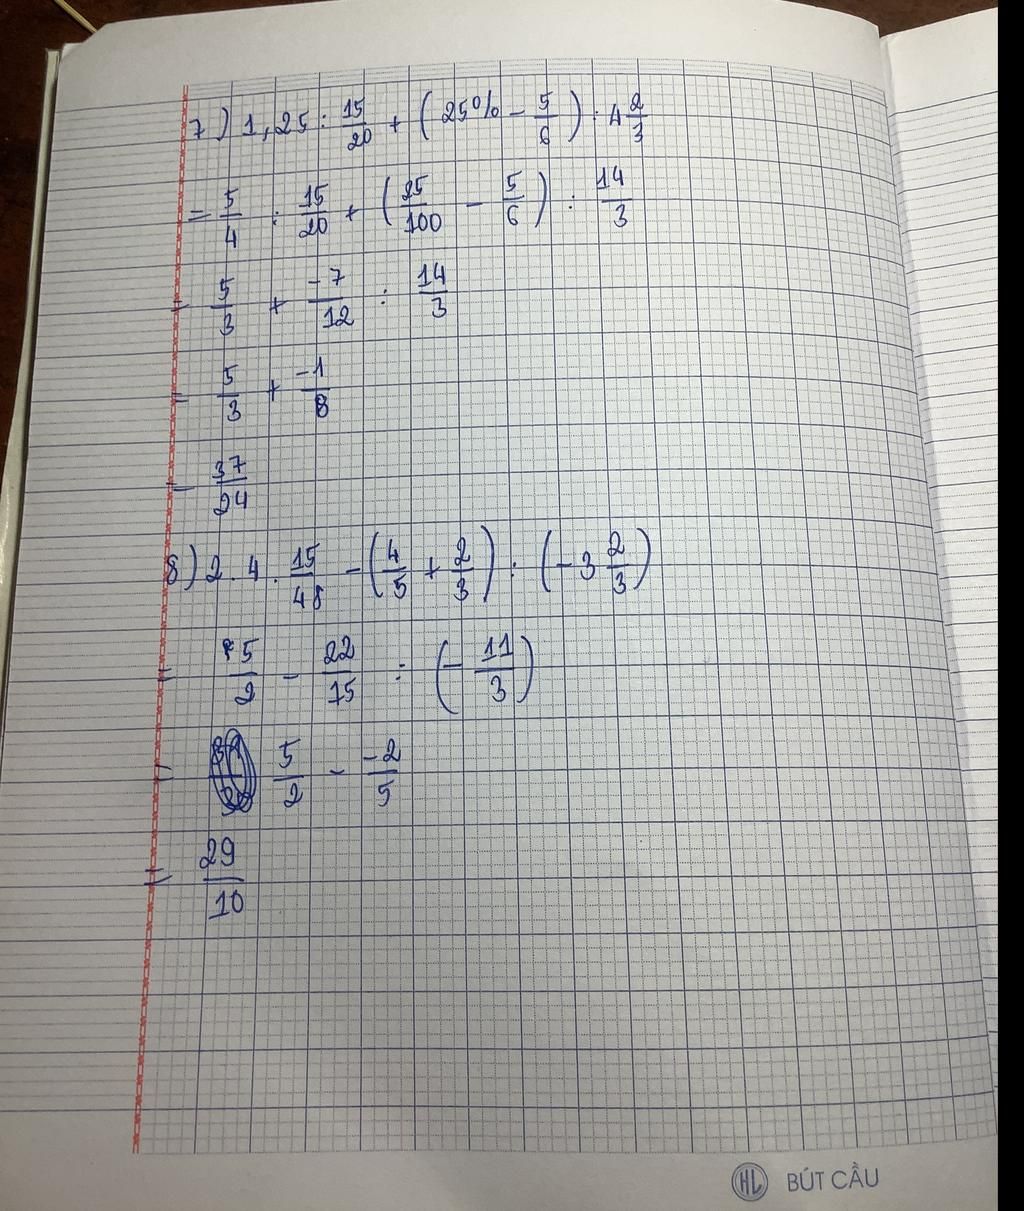 7) 1,25 : 15/20 + ( 25% - 5/6 ) : 4 2/3
= 5/4 : 15/20 + ( 25/100 - 5/6 ) : 14/3
= 5/3 + -7/12 : 14/3
= 5/3 + -1/8
= 37/24
8) 2.4 . 15/48 - ( 4/5 + 2/3 ) : ( -3 2/3 )
= 5/2 - 22/15 : ( - 11/3 )
= 5/2 - -2/5
= 29/10
HL BÚT CẦU